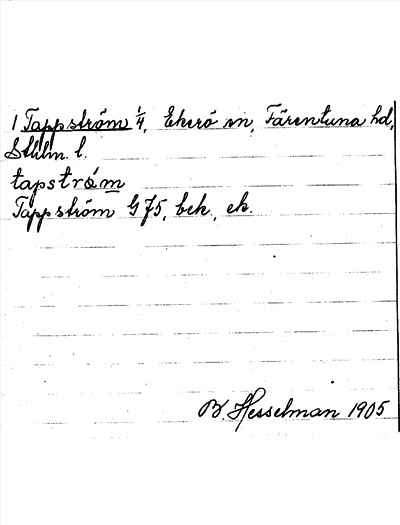 1 Tappström 1/4, Ekerö sn, Färentuna hd,
Sthlm l.
tapström
Tappström G 75, bek., ek.
B. Hesselman 1905